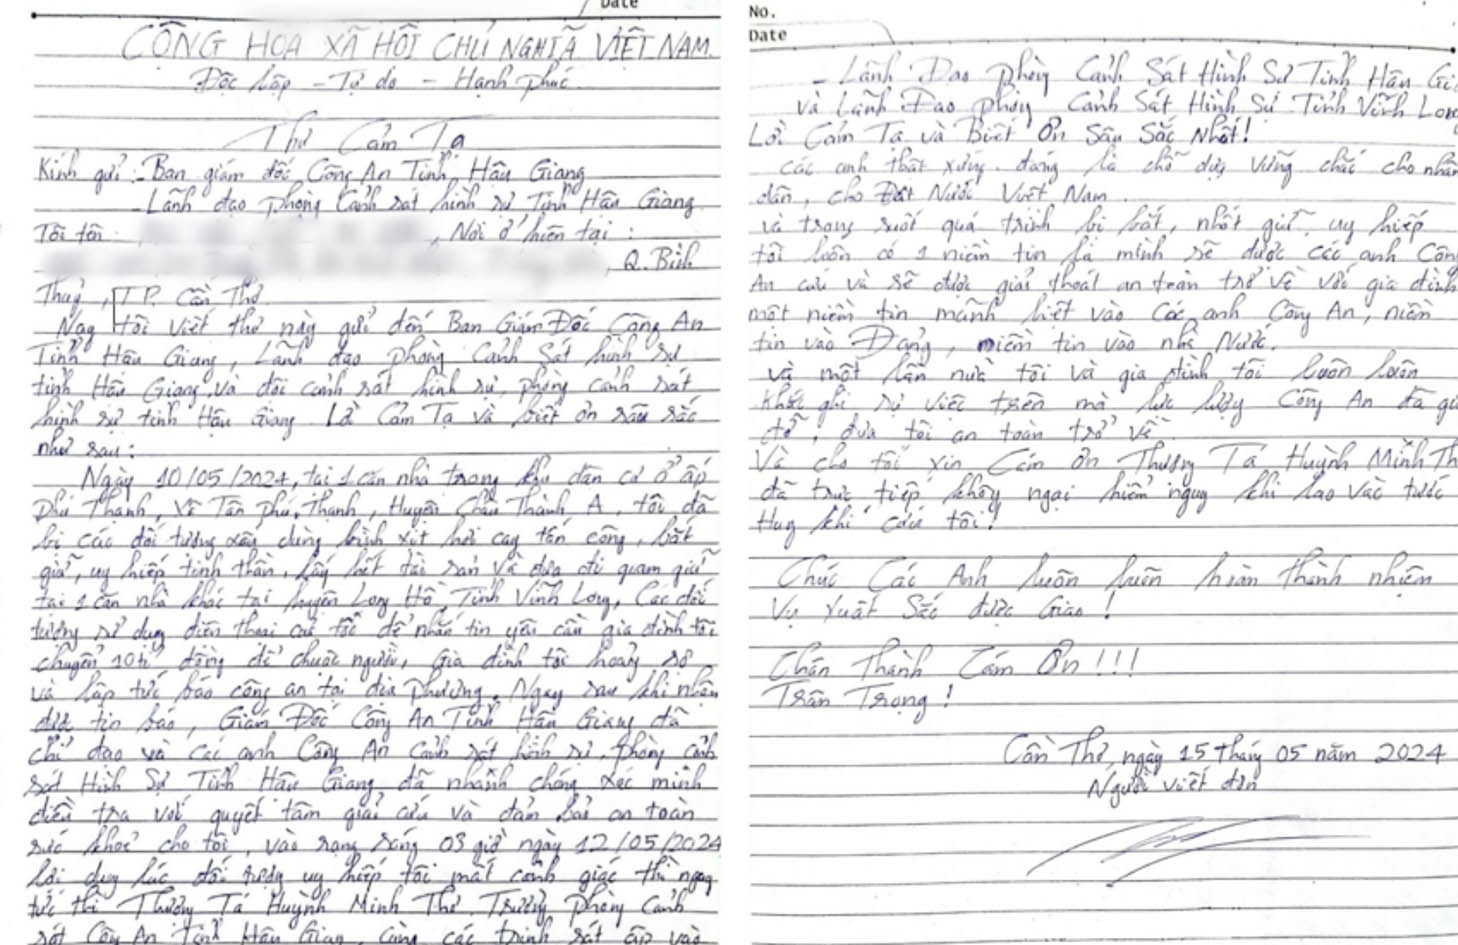 Date
CỘNG HOA XÃ HỘI CHỦ NGHĨA VIỆT NAM
Độc lập - Tự do - Hạnh phúc
Thư Cảm Tạ
Kính gửi: - Ban giám đốc Công An Tỉnh Hậu Giang
- Lãnh đạo phòng cảnh sát hình sự Tỉnh Hậu Giang
Tôi tên , Nơi ở hiện tại :
, Q. Bình
Thuỷ, TP. Cần Thơ
Nay tôi viết thư này gửi đến Ban Giám Đốc Công An
Tỉnh Hậu Giang, Lãnh đạo phòng Cảnh Sát hình sự
tỉnh Hậu Giang, và đội cảnh sát hình sự, phòng cảnh sát
hình sự tỉnh Hậu Giang. Lời Cảm Tạ và biết ơn sâu sắc
như sau:
Ngày 10/05/2024, tại 1 căn nhà trong khu dân cư ở ấp
Phú Thạnh, Xã Tân Phú Thạnh, Huyện Châu Thành A, tôi đã
bị các đối tượng xấu dùng bình xịt hơi cay tấn công, bắt
giữ, uy hiếp tinh thần, lấy hết tài sản và đưa đi quam giữ
tại 1 căn nhà khác tại huyện Long Hồ, Tỉnh Vĩnh Long, Các đối
tượng sử dụng điện thoại của tôi để nhắn tin yêu cầu gia đình tôi
chuyển 10 tỉ đồng để chuộc người, Gia đình tôi hoảng sợ
và lập tức báo công an tại địa phương. Ngay sau khi nhận
được tin báo, Giám Đốc Công An Tỉnh Hậu Giang đã
chỉ đạo và các anh Công An cảnh sát hình sự, phòng cảnh
sát Hình Sự Tỉnh Hậu Giang đã nhanh chóng xác minh
điều tra với quyết tâm giải cứu và đảm bảo an toàn
sức khoẻ cho tôi, vào rạng sáng 03 giờ ngày 12/05/2024
lợi dụng lúc đối tượng uy hiếp tôi mất cảnh giác thì ngay
tức thì Thượng Tá Huỳnh Minh Thơ Trưởng phòng Cảnh
sát Công An tỉnh Hậu Giang, cùng các trinh sát ập vào
No.
Date
- Lãnh Đạo phòng Cảnh Sát Hình Sự Tỉnh Hậu Gi
và Lãnh Đạo phòng Cảnh Sát Hình Sự Tỉnh Vĩnh Long
Lời Cảm Tạ và Biết Ơn Sâu Sắc Nhất!
Các anh thật xứng đáng là chỗ dựa vững chắc cho nhân
dân, cho Đất Nước Việt Nam.
và trong suốt quá trình bị bắt, nhốt giữ, uy hiếp
tôi luôn có 1 niềm tin là mình sẽ được các anh Công
An cứu và sẽ được giải thoát an toàn trở về với gia đình
một niềm tin mãnh liệt vào các anh Công An, niềm
tin vào Đảng, niềm tin vào nhà Nước.
và một lần nữa tôi và gia đình tôi luôn luôn
khắc ghi sự việc trên mà lực lượng Công An đã gi
đỡ, đưa tôi an toàn trở về.
Và cho tôi xin Cám ơn Thượng Tá Huỳnh Minh Th
đã trực tiếp không ngại hiểm nguy khi lao vào tước
Hung khí cứu tôi!
Chúc Các Anh luôn luôn hoàn thành nhiệm
Vụ Xuất Sắc được Giao!
Chân Thành Cám Ơn!!!
Trân Trọng!
Cần Thơ, ngày 15 tháng 05 năm 2024
Người viết đơn